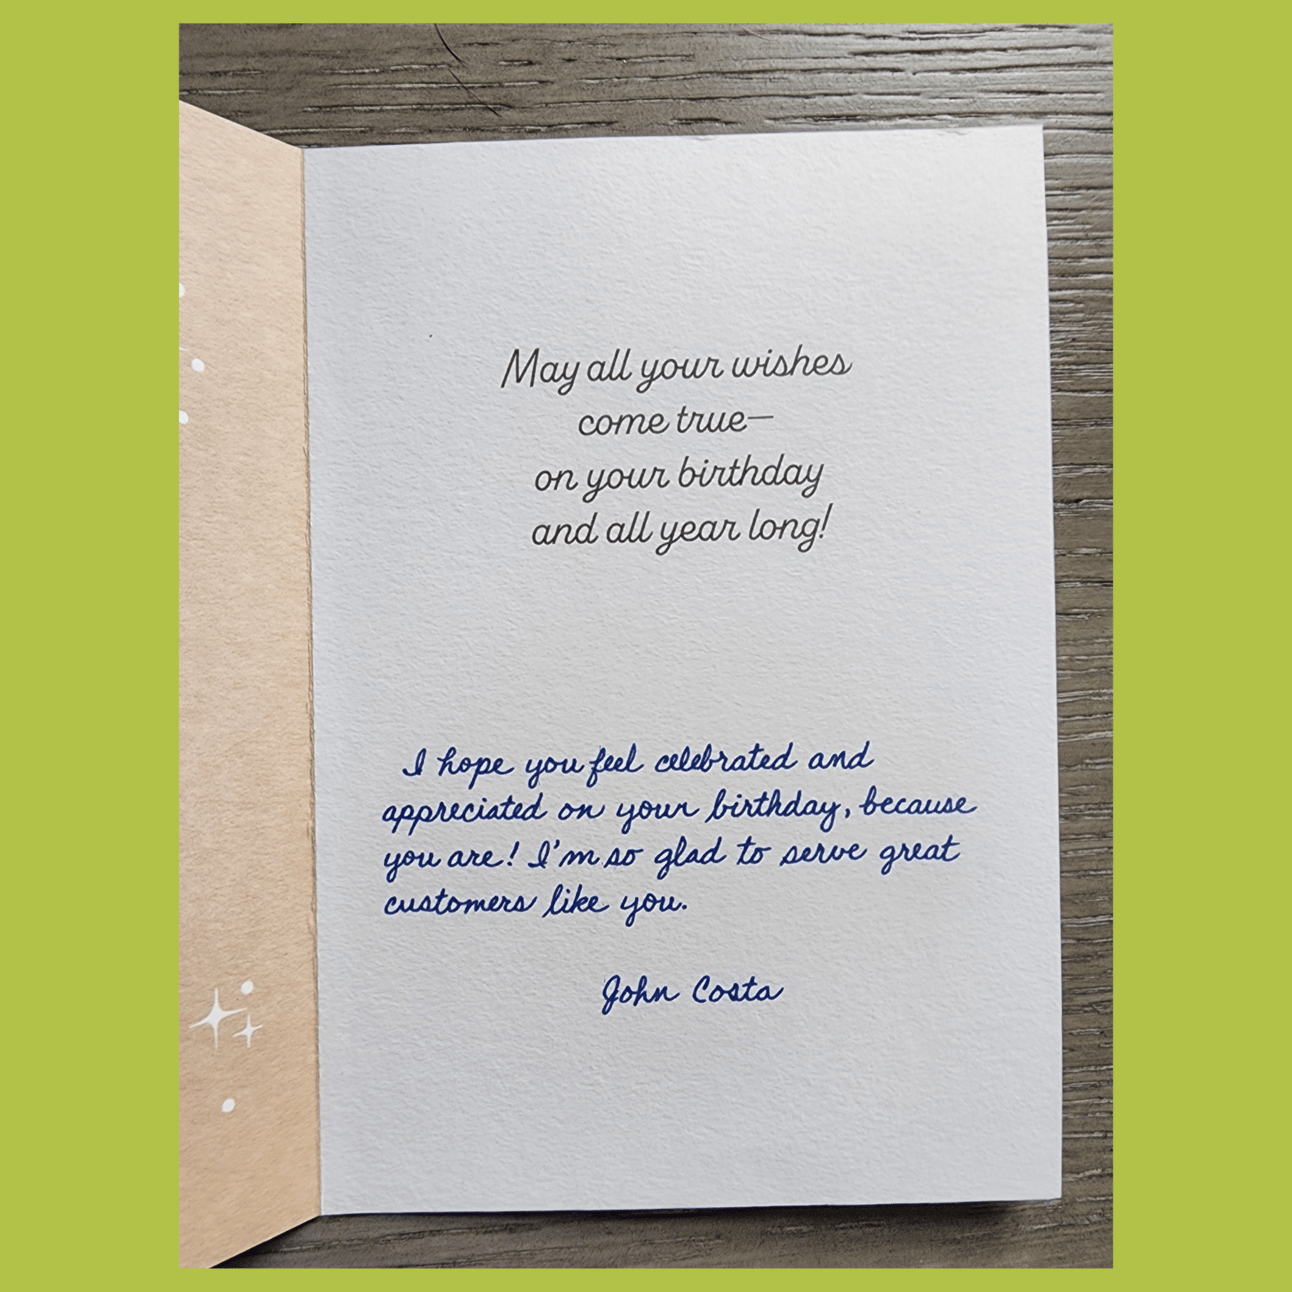 May all your wishes
come true—
on your birthday
and all year long!
I hope you feel celebrated and
appreciated on your birthday, because
you are! I'm so glad to serve great
customers like you.
John Costa